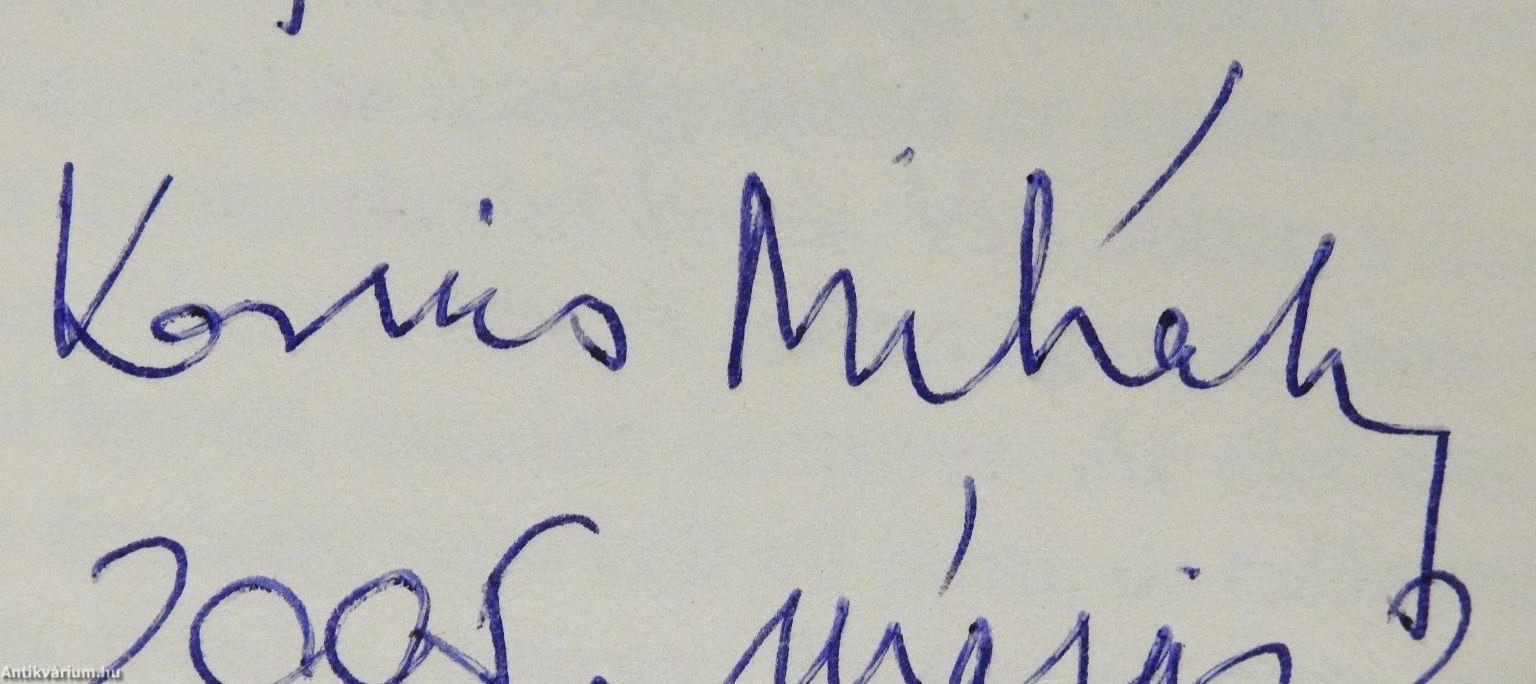 Kornis Mihály
2005. május 2
Antikvárium.hu